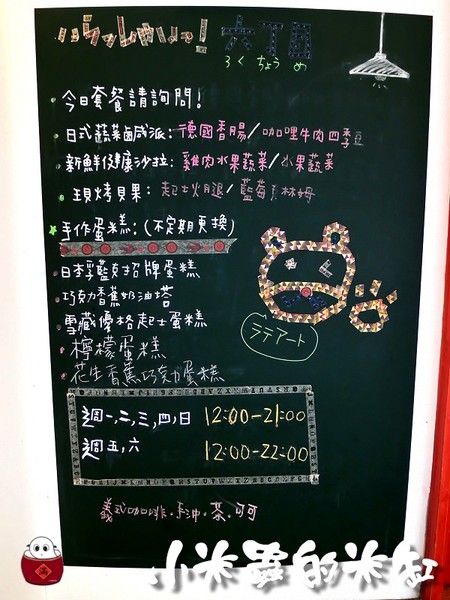 いらっしゃいっ! 六丁目
ろくちょうめ
今日套餐請詢問!
日式蔬菜鹹派:德國香腸/咖哩牛肉四季豆
新鮮健康沙拉:雞肉水果蔬菜/水果蔬菜
現烤貝果:起士火腿/藍莓蘭姆
手作蛋糕:(不定期更換)
日本藍紋招牌蛋糕
巧克力香蕉奶油塔
雪藏優格起士蛋糕
檸檬蛋糕
花生香蕉巧克力蛋糕
ラテアート
週一,二,三,四,日 12:00-21:00
週五,六 12:00-22:00
義式咖啡.手沖.茶.可可
小米蟲的米缸